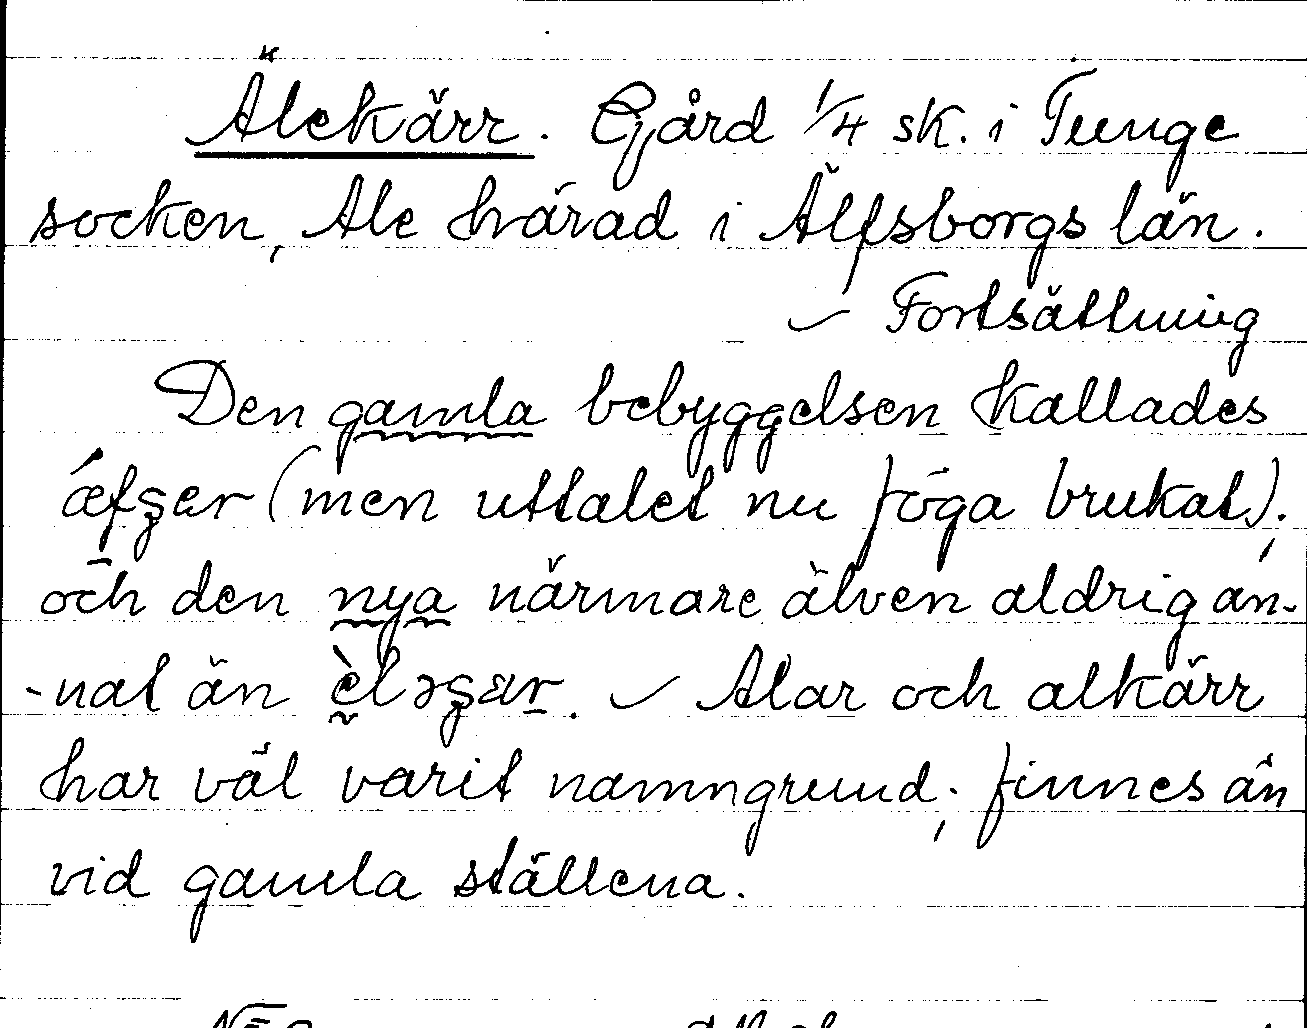 Älekärr. Gård 1/4 sk. i Tunge
socken, Ale härad i Älfsborgs län.
– Fortsättning
Den gamla bebyggelsen kallades
(men uttalet nu föga brukat);
och den nya närmare älven aldrig an-
-nat än – Alar och alkärr
har väl varit namngrund; finnes än
vid gamla ställena.